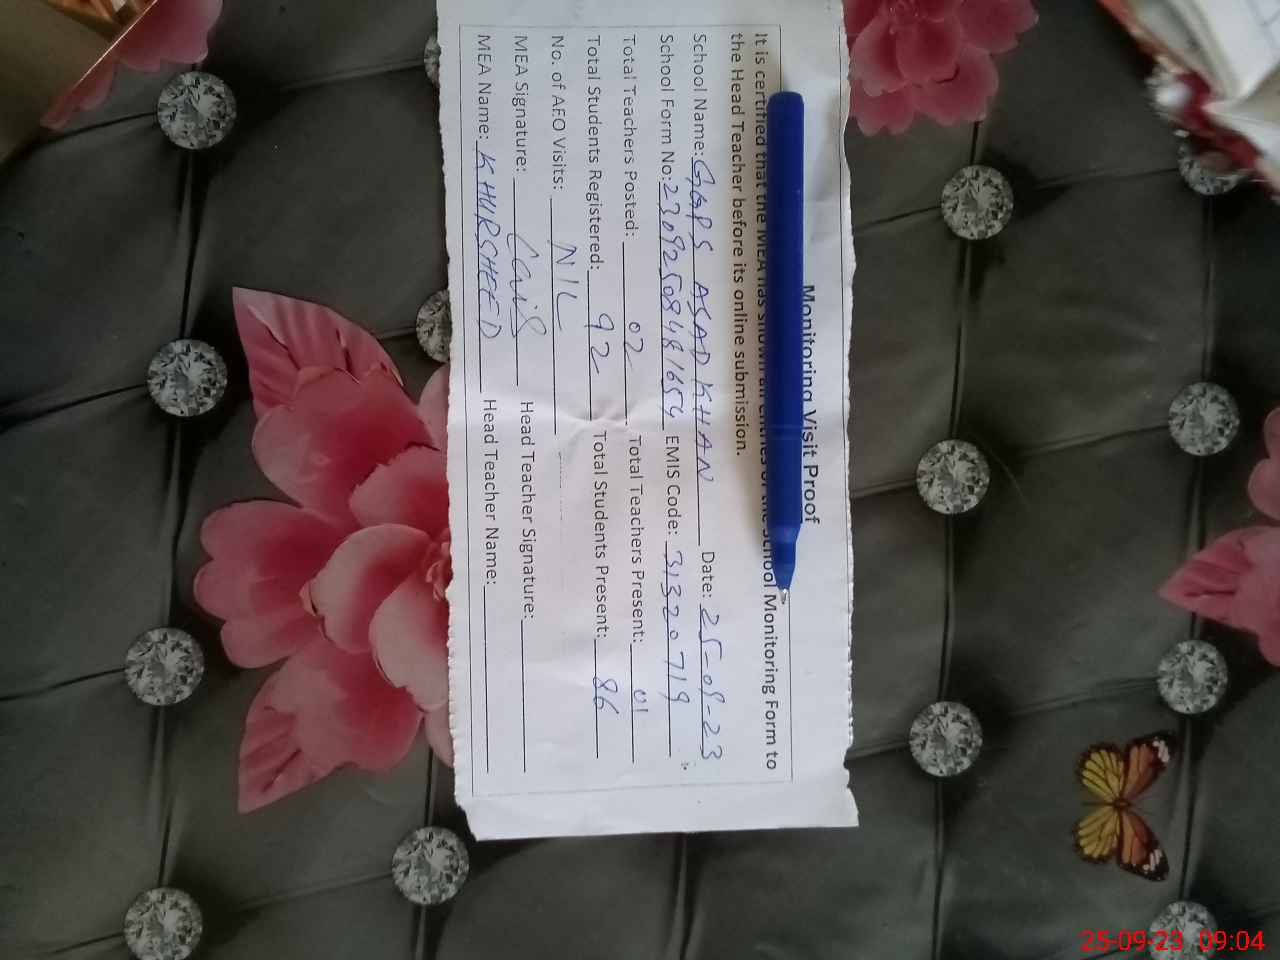 Monitoring Visit Proof
It is certified that the MEA has shown all entries of the School Monitoring Form to
the Head Teacher before its online submission.
School Name: GGPS ASAD KHAN Date: 25-09-23
School Form No: 23092508481654 EMIS Code: 31320719
Total Teachers Posted: 02 Total Teachers Present: 01
Total Students Registered: 92 Total Students Present: 86
No. of AEO Visits: NIL
MEA Signature: Head Teacher Signature:
MEA Name: KHURSHEED Head Teacher Name:
25-09-23 09:04